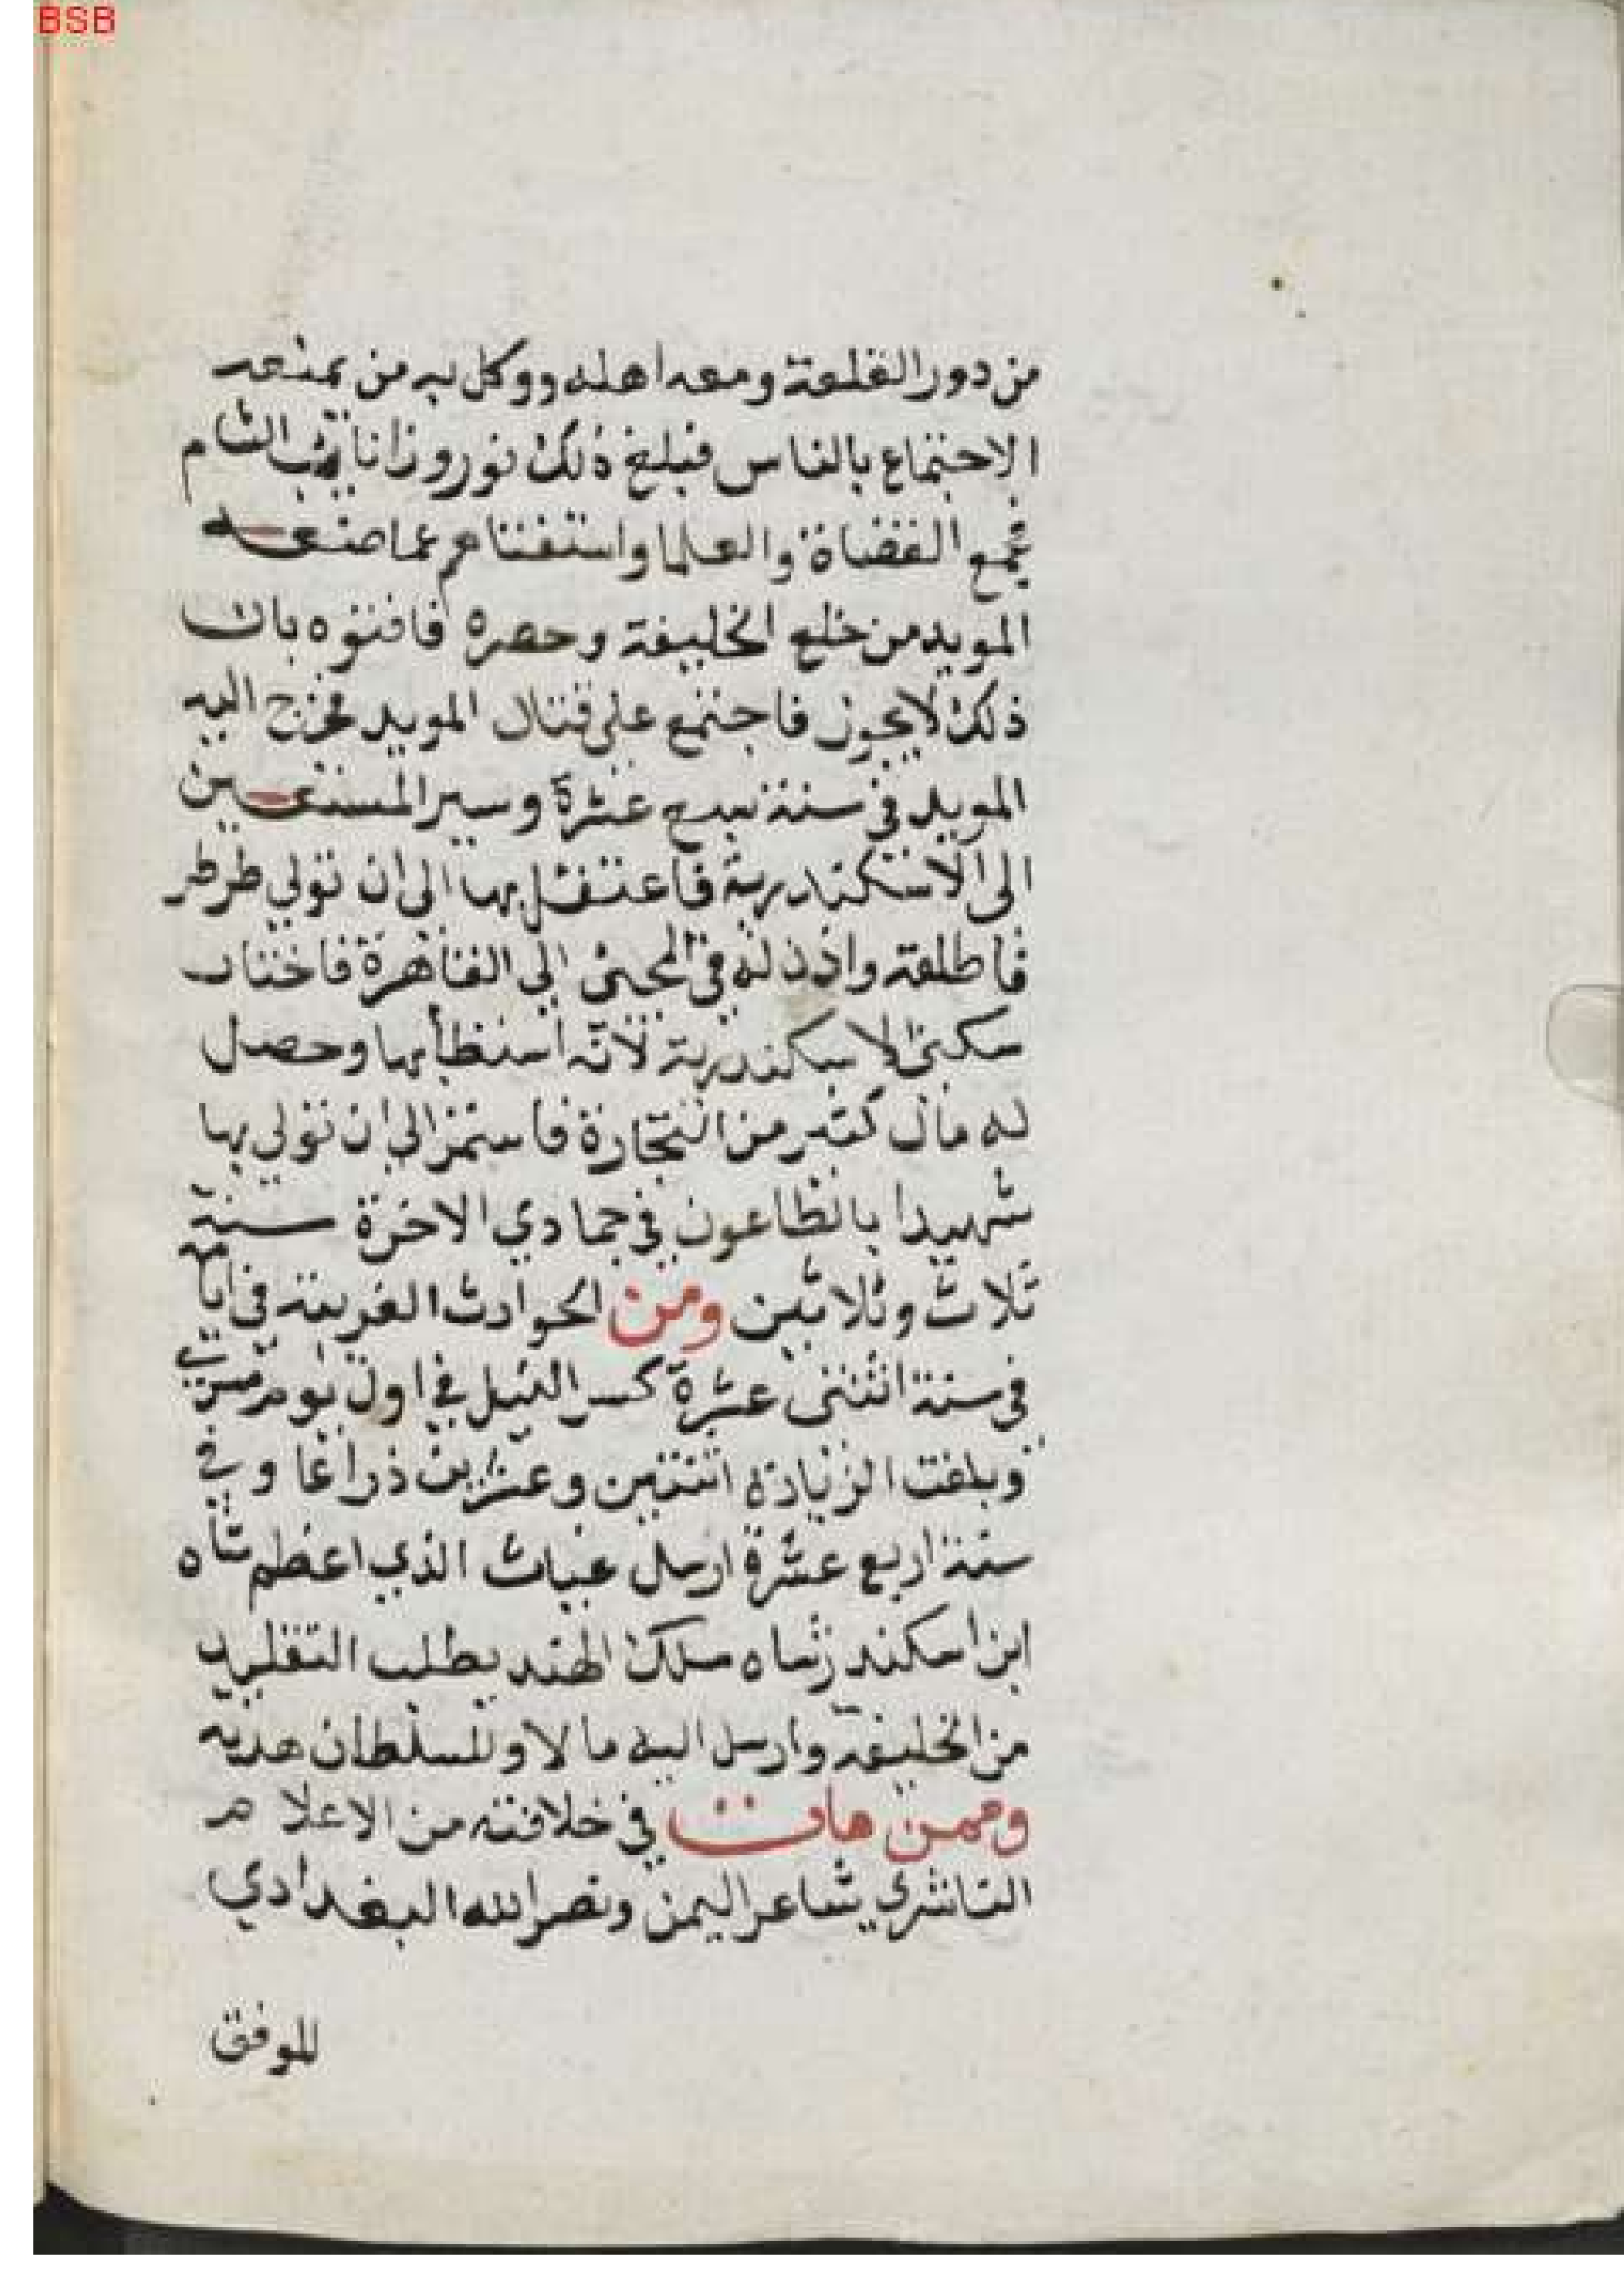 BSB
من دور القلعة ومعه اهله ووكل به من يمنعه
الاجتماع بالناس فبلغ ذلك نوروزا نائب الشام
فجمع القضاة والعلما واستفتاهم عما صنعه
المويد من خلع الخليفة وحصره فافتوه بان
ذلك لايجوز فاجتمع على قتال المويد فخرج اليه
المويد في سنة سبع عشرة وسير المستعين
الى الاسكندرية فاعتقل بها الى ان تولي ططر
فاطلقه واذن له في المجئ الي القاهرة فاختار
سكنى الاسكندرية لانه استطابها وحصل
له مال كثير من التجارة فاستمر الي ان تولي بها
شهيدا بالطاعون في جمادي الاخرة سنة
ثلاث وثلاثين ومن الحوادث الغريبة في ايامه
في سنة اثنتى عشرة كسر النيل في اول يوم مسري
وبلغت الزيادة اثنتين وعشرين ذراعا وفي
سنة اربع عشرة ارسل غياث الذي اعظم شاه
ابن اسكندر شاه ملك الهند يطلب التقليد
من الخليفة وارسل اليه مالا وللسلطان هدية
وممن مات في خلافته من الاعلام
الناشري شاعر اليمن ونصر الله البغدادي
الموفق